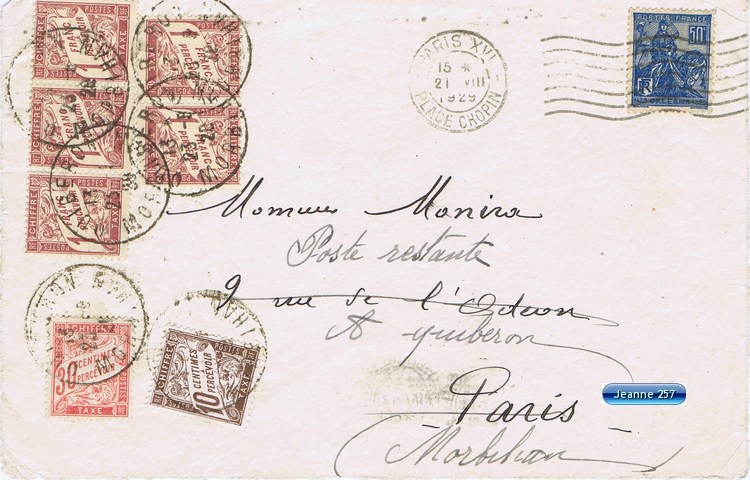 PARIS XVI
15 *
21 VII
1929
PLACE CHOPIN
POSTES FRANCE
50c
ORLEANS
1 FRANC A PERCEVOIR
CHIFFRE TAXE POSTES
1 FRANC A PERCEVOIR
CHIFFRE TAXE
1 FRANC A PERCEVOIR
CHIFFRE POSTES
1 FRANC A PERCEVOIR
1 FRANC A PERCEVOIR
CHIFFRE POSTES
MORBIHAN
Monsieur Monira
Poste restante
9 rue de l'Odéon
A quiberon
Paris
Morbihan
30 CENTIMES A PERCEVOIR
CHIFFRE TAXE POSTES
10 CENTIMES A PERCEVOIR
CHIFFRE TAXE POSTES
Jeanne 257